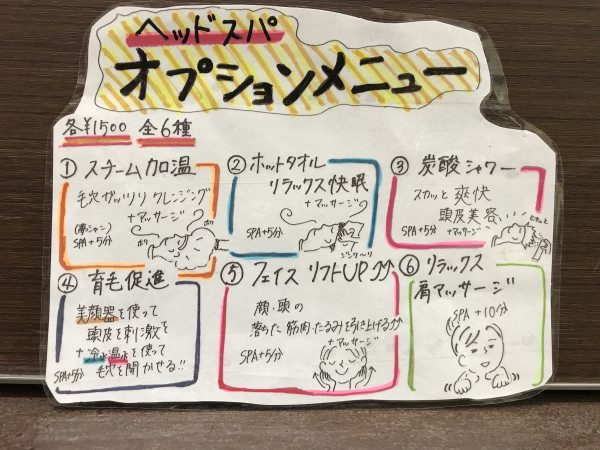 ヘッドスパ
オプションメニュー
各¥1500 全6種
① スチーム加温
毛穴ガッツリ クレンジング
+マッサージ
SPA+5分
② ホットタオル
リラックス快眠
+マッサージ
SPA+5分
③ 炭酸シャワー
スカッと 爽快
頭皮美容
+マッサージ
SPA+5分
④ 育毛促進
美顔器を使って
頭皮を刺激を
+冷と温を使って
毛穴を開かせる!!
SPA+5分
⑤ フェイス リフトUP↑↑
顔・頭の
落ちた 筋肉・たるみを引き上げる↑↑
+マッサージ
SPA+5分
⑥ リラックス
肩マッサージ
SPA +10分